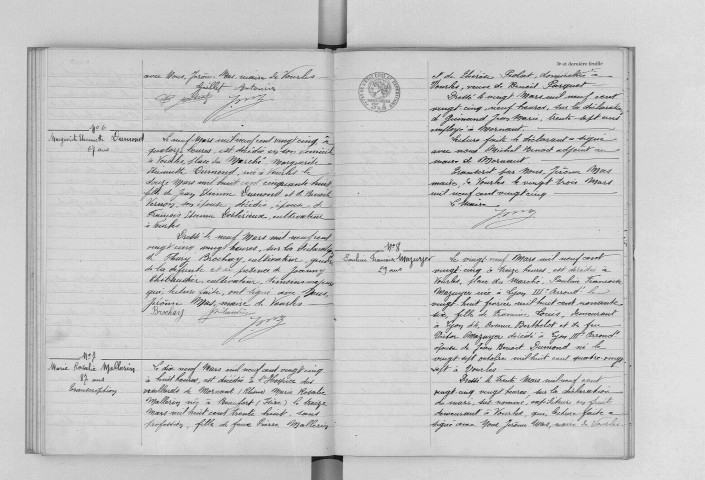 avec Nous, Jérôme Mas, maire de Vourles
Nº 6
Marguerite Dumond
67 ans
Le neuf Mars mil neuf cent vingt cinq à
quatorze heures, est décédée en son domicile
à Vourles, place du Marché Marguerite
Dumond, née à Vourles le
Mars mil huit cent cinquante huit
fille de Jean Etienne Dumond et de
Vernon, son épouse, décédés, épouse de
François Etienne cultivateur
à Vourles
Dressé le neuf Mars mil neuf cent
vingt cinq vingt heures, sur la déclaration
de Fleury Brochay, cultivateur, gendre
de la défunte et en présence de Joanny
cultivateur, domiciliés
qui, lecture faite, ont signé avec Nous,
Jérôme Mas, maire de Vourles
Brochay
Nº 7
Marie Rosalie Mallerin
87 ans
Transcription
Le dix neuf Mars mil neuf cent vingt cinq
à huit heures, est décédée à l'Hospice des
vieillards de Mornant (Rhône) Marie Rosalie
Mallerin née à Beaufort (Isère) le
Mars mil huit cent trente huit, sans
profession, fille de feux Pierre Mallerin
3e et dernière feuille
et de Thérèse domiciliée à
Vourles, veuve de Benoit
Dressé le vingt Mars mil neuf cent
vingt cinq, neuf heures, sur la déclaration
de Guimand Jean Marie, trente sept ans
employé à Mornant.
Lecture faite le déclarant a signé
avec nous Michel Benoit adjoint au
maire de Mornant
Transcrit par Nous, Jérôme Mas
maire de Vourles le vingt trois Mars
mil neuf cent vingt cinq
Le Maire
Nº 8
Pauline Françoise Mazuyer
29 ans
Le vingt neuf Mars mil neuf cent
vingt cinq à treize heures, est décédée à
Vourles, place du Marché, Pauline Françoise
Mazuyer née à Lyon IIIe Arrond. le
vingt huit février mil huit cent nonante
six, fille de Louis, demeurant
à Lyon Avenue Berthelot et de feu
Victor Mazuyer décédé à Lyon IIIe Arrond.
épouse de Jean Benoit Dumond né le
vingt sept octobre mil huit cent quatre vingt
sept à Vourles
Dressé le trente Mars mil neuf cent
vingt cinq vingt heures, sur la déclaration
du mari, sus nommé, en fruit
demeurant à Vourles, qui, lecture faite a
signé avec Nous Jérôme Mas, maire de Vourles